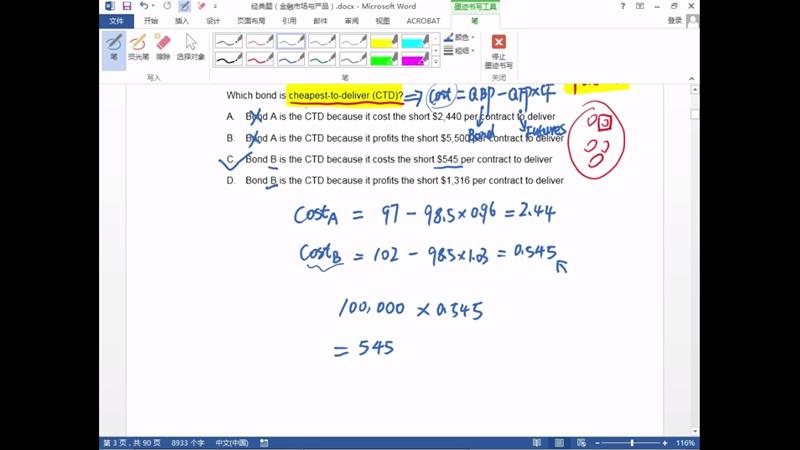 经典题（金融市场与产品）.docx - Microsoft Word
墨迹书写工具
文件 开始 插入 设计 页面布局 引用 邮件 审阅 视图 ACROBAT 笔
登录
笔 荧光笔 擦除 选择对象
颜色
粗细
停止
墨迹书写
写入
笔
关闭
Which bond is cheapest-to-deliver (CTD)? ⇒ Cost = QBP - QFP×CF
A. Bond A is the CTD because it cost the short $2,440 per contract to deliver
Bond Futures
B. Bond A is the CTD because it profits the short $5,500 per contract to deliver
C. Bond B is the CTD because it costs the short $545 per contract to deliver
D. Bond B is the CTD because it profits the short $1,316 per contract to deliver
Cost A = 97 - 98.5×0.96 = 2.44
Cost B = 102 - 98.5×1.03 = 0.545
100,000 × 0.545
= 545
第 3 页，共 90 页 8933 个字 中文(中国)
116%